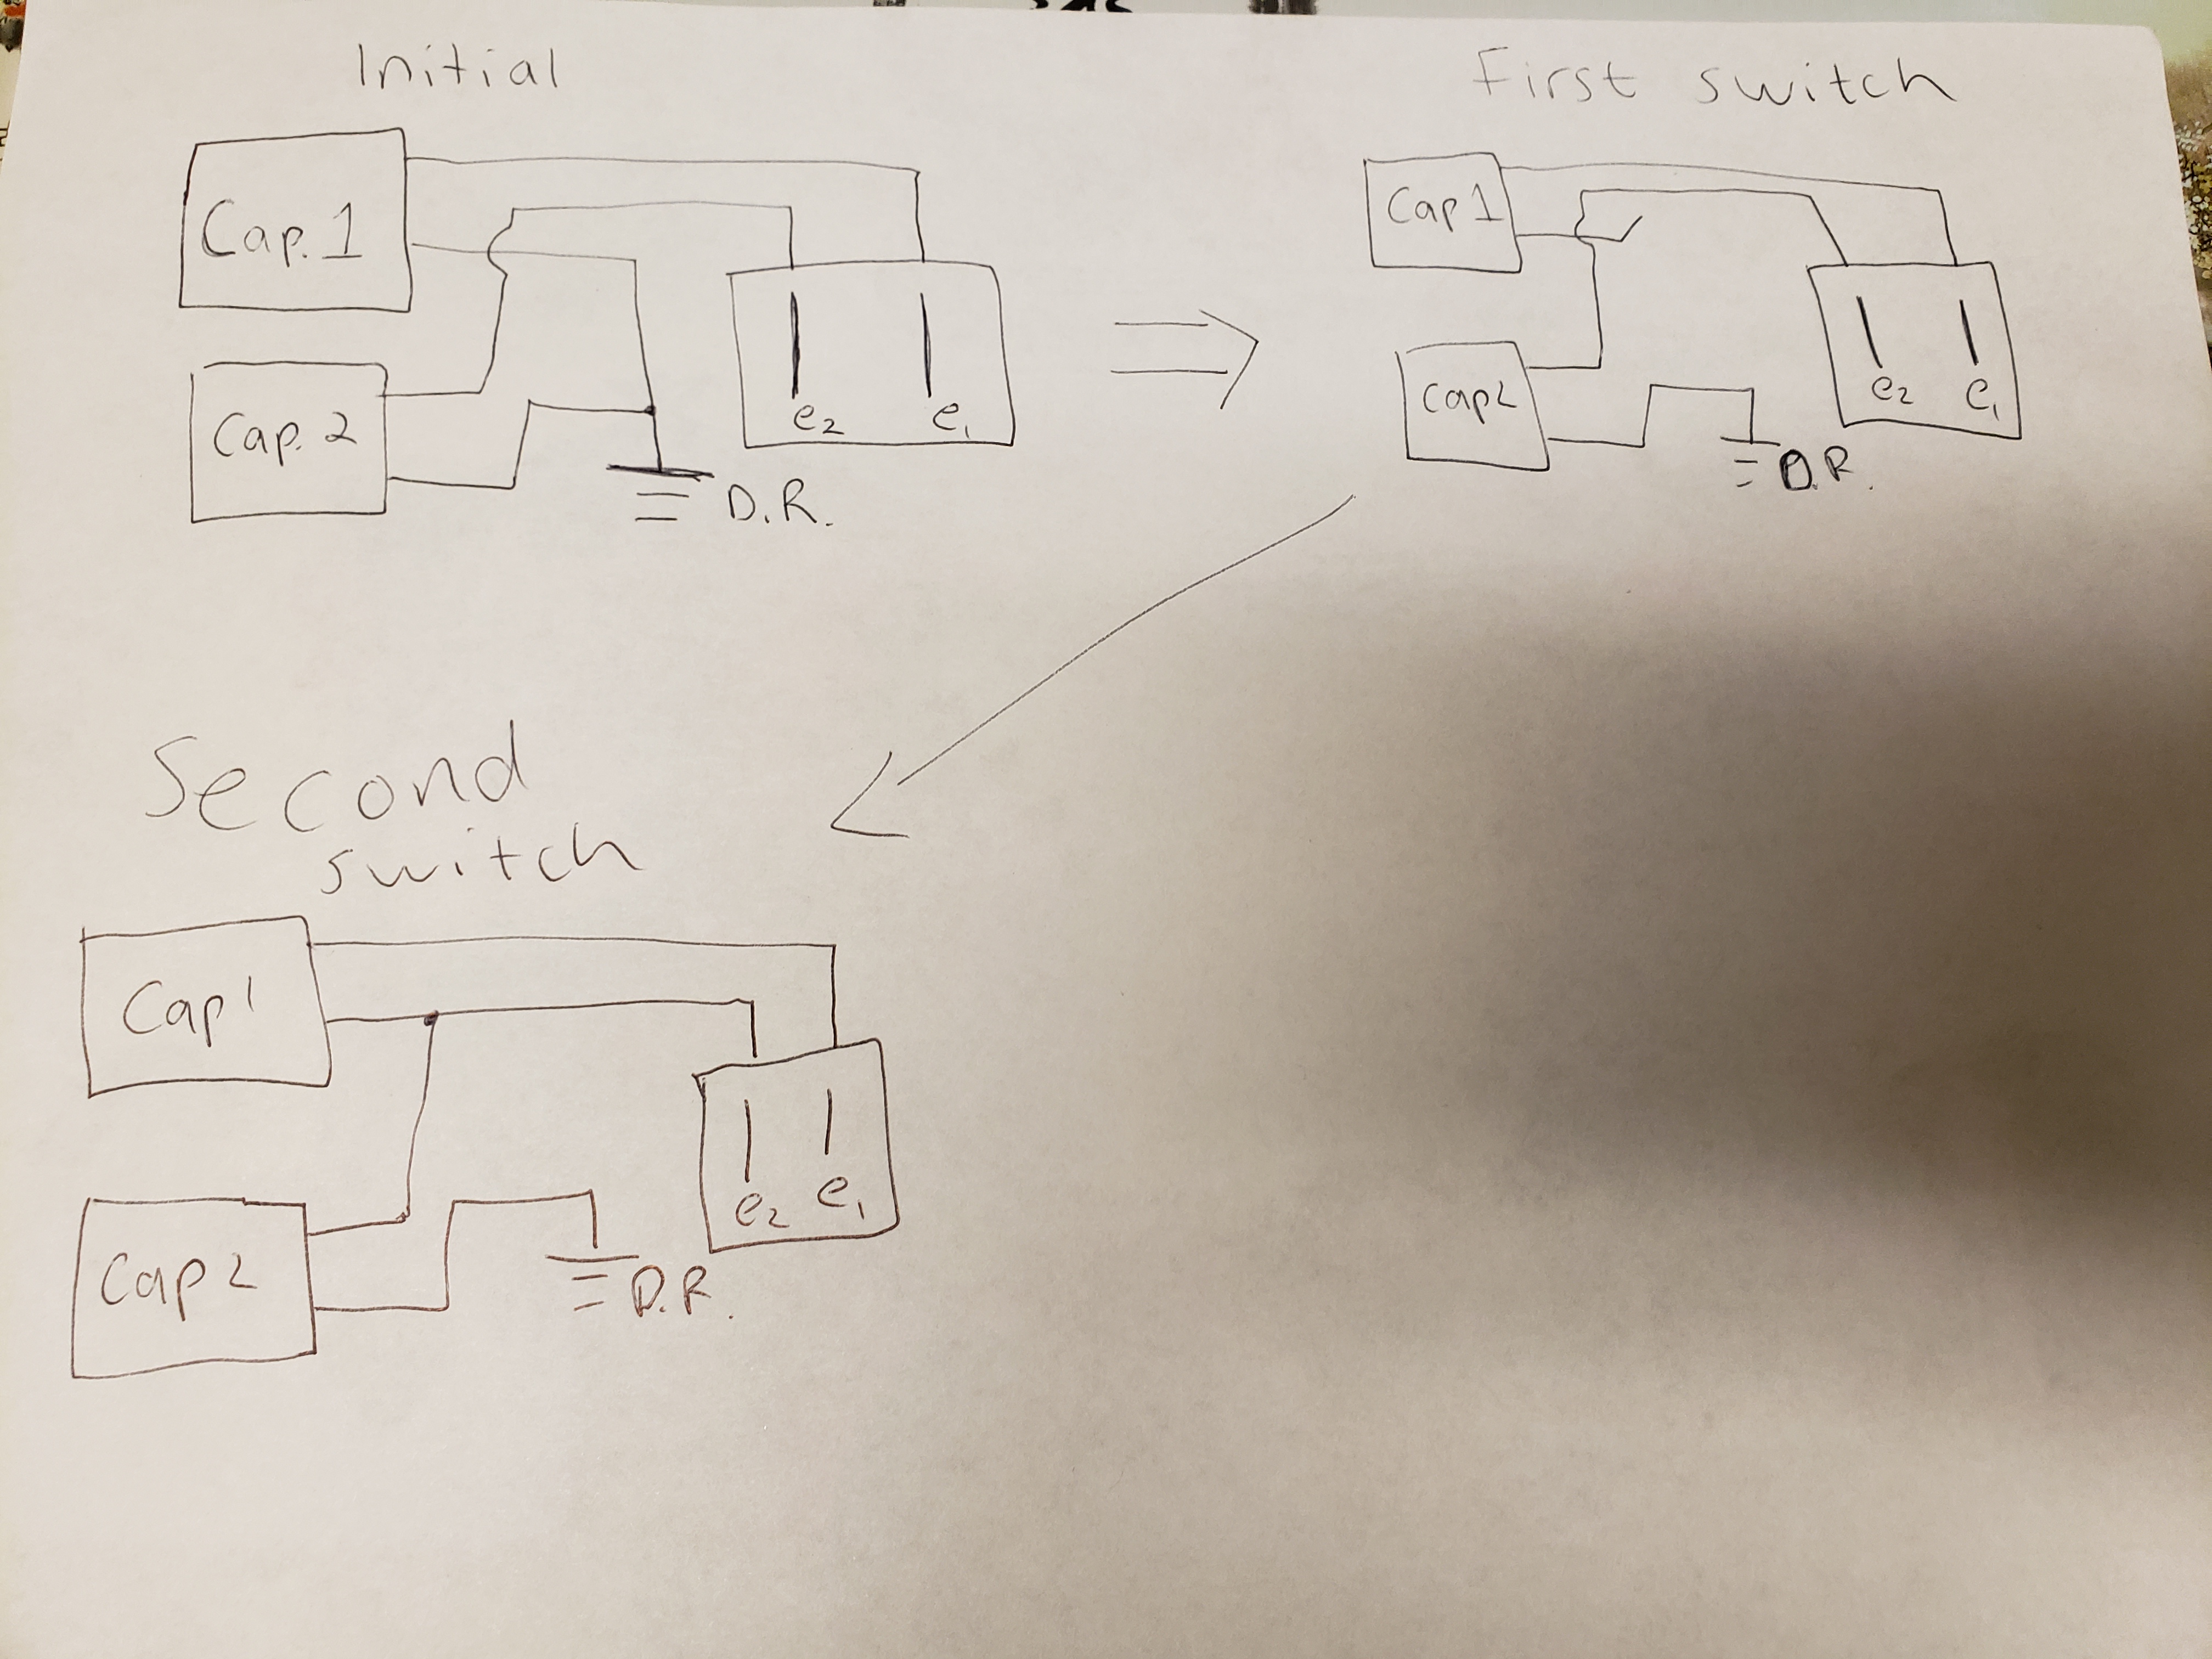 Initial
Cap. 1
Cap. 2
e2 e1
D.R.
First switch
Cap 1
Cap2
e2 e1
D.R.
Second
switch
Cap 1
Cap 2
e2 e1
D.R.